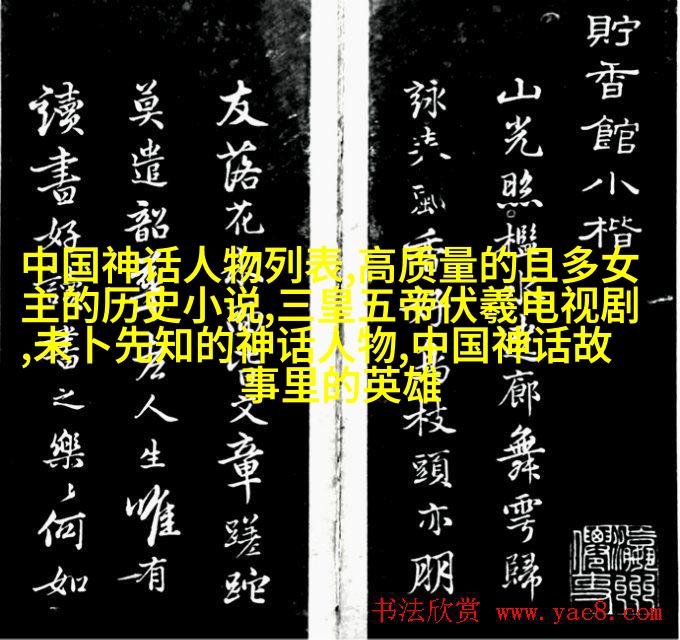 貯香館小楷
山光照檻遶廊舞雩歸
詠風香枝頭亦朋
友落花文章蹉跎
莫遣韶人生唯有
讀書好讀書之樂々何如
中国神话人物列表,高质量的且多女
主的历史小说,三皇五帝伏羲电视剧
,未卜先知的神话人物,中国神话故
事里的英雄
书法欣赏 www.yac8.com